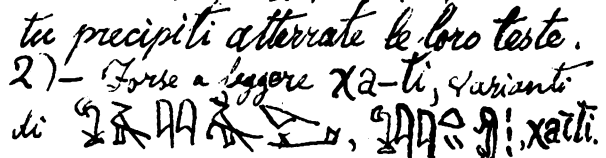 tu precipiti atterrate le loro teste.
2) — Forse a leggere χa-ti, varianti
di , , χati.